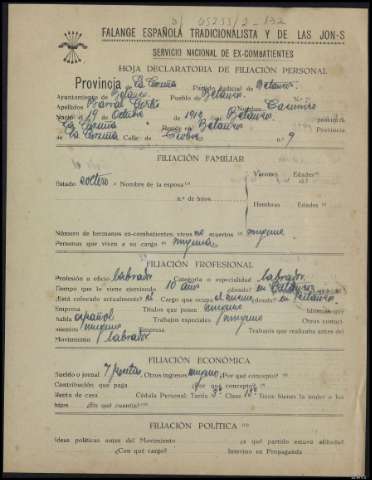 FALANGE ESPAÑOLA TRADICIONALISTA Y DE LAS JON-S
SERVICIO NACIONAL DE EX-COMBATIENTES
HOJA DECLARATORIA DE FILIACIÓN PERSONAL
Provincia de La Coruña Partido Judicial de Betanzos
Ayuntamiento de Betanzos Pueblo de Betanzos
Apellidos Nombre Casimiro
Nació el 19 de Octubre de 1912 en Betanzos provincia
La Coruña Reside en Betanzos Provincia
de La Coruña Calle de n.º 9
FILIACIÓN FAMILIAR
Varones Edades
Estado soltero Nombre de la esposa
n.º de hijos
Hembras Edades
Número de hermanos ex-combatientes, vivos muertos ninguno
Personas que viven a su cargo ninguna
FILIACIÓN PROFESIONAL
Profesión u oficio labrador Categoría o especialidad labrador
Tiempo que lo viene ejerciendo 10 años ¿dónde? en Betanzos
¿Está colocado actualmente? Cargo que ocupa el mismo ¿desde? en Betanzos
Empresa Títulos que posee ninguno Idiomas que
habla español Trabajos especiales ninguno Otros conoci-
mientos ninguno Empresa Trabajos que realizaba antes del
Movimiento labrador
FILIACIÓN ECONÓMICA
Sueldo o jornal 7 pesetas Otros ingresos ninguno ¿Por qué concepto?
Contribución que paga ¿por qué concepto?
Renta de casa Cédula Personal: Tarifa 3ª Clase Tiene bienes la mujer o los
hijos ¿En qué cuantía?
FILIACIÓN POLÍTICA
Ideas políticas antes del Movimiento ¿a qué partido estuvo afiliado?
¿Con qué cargo? Intervino en Propaganda